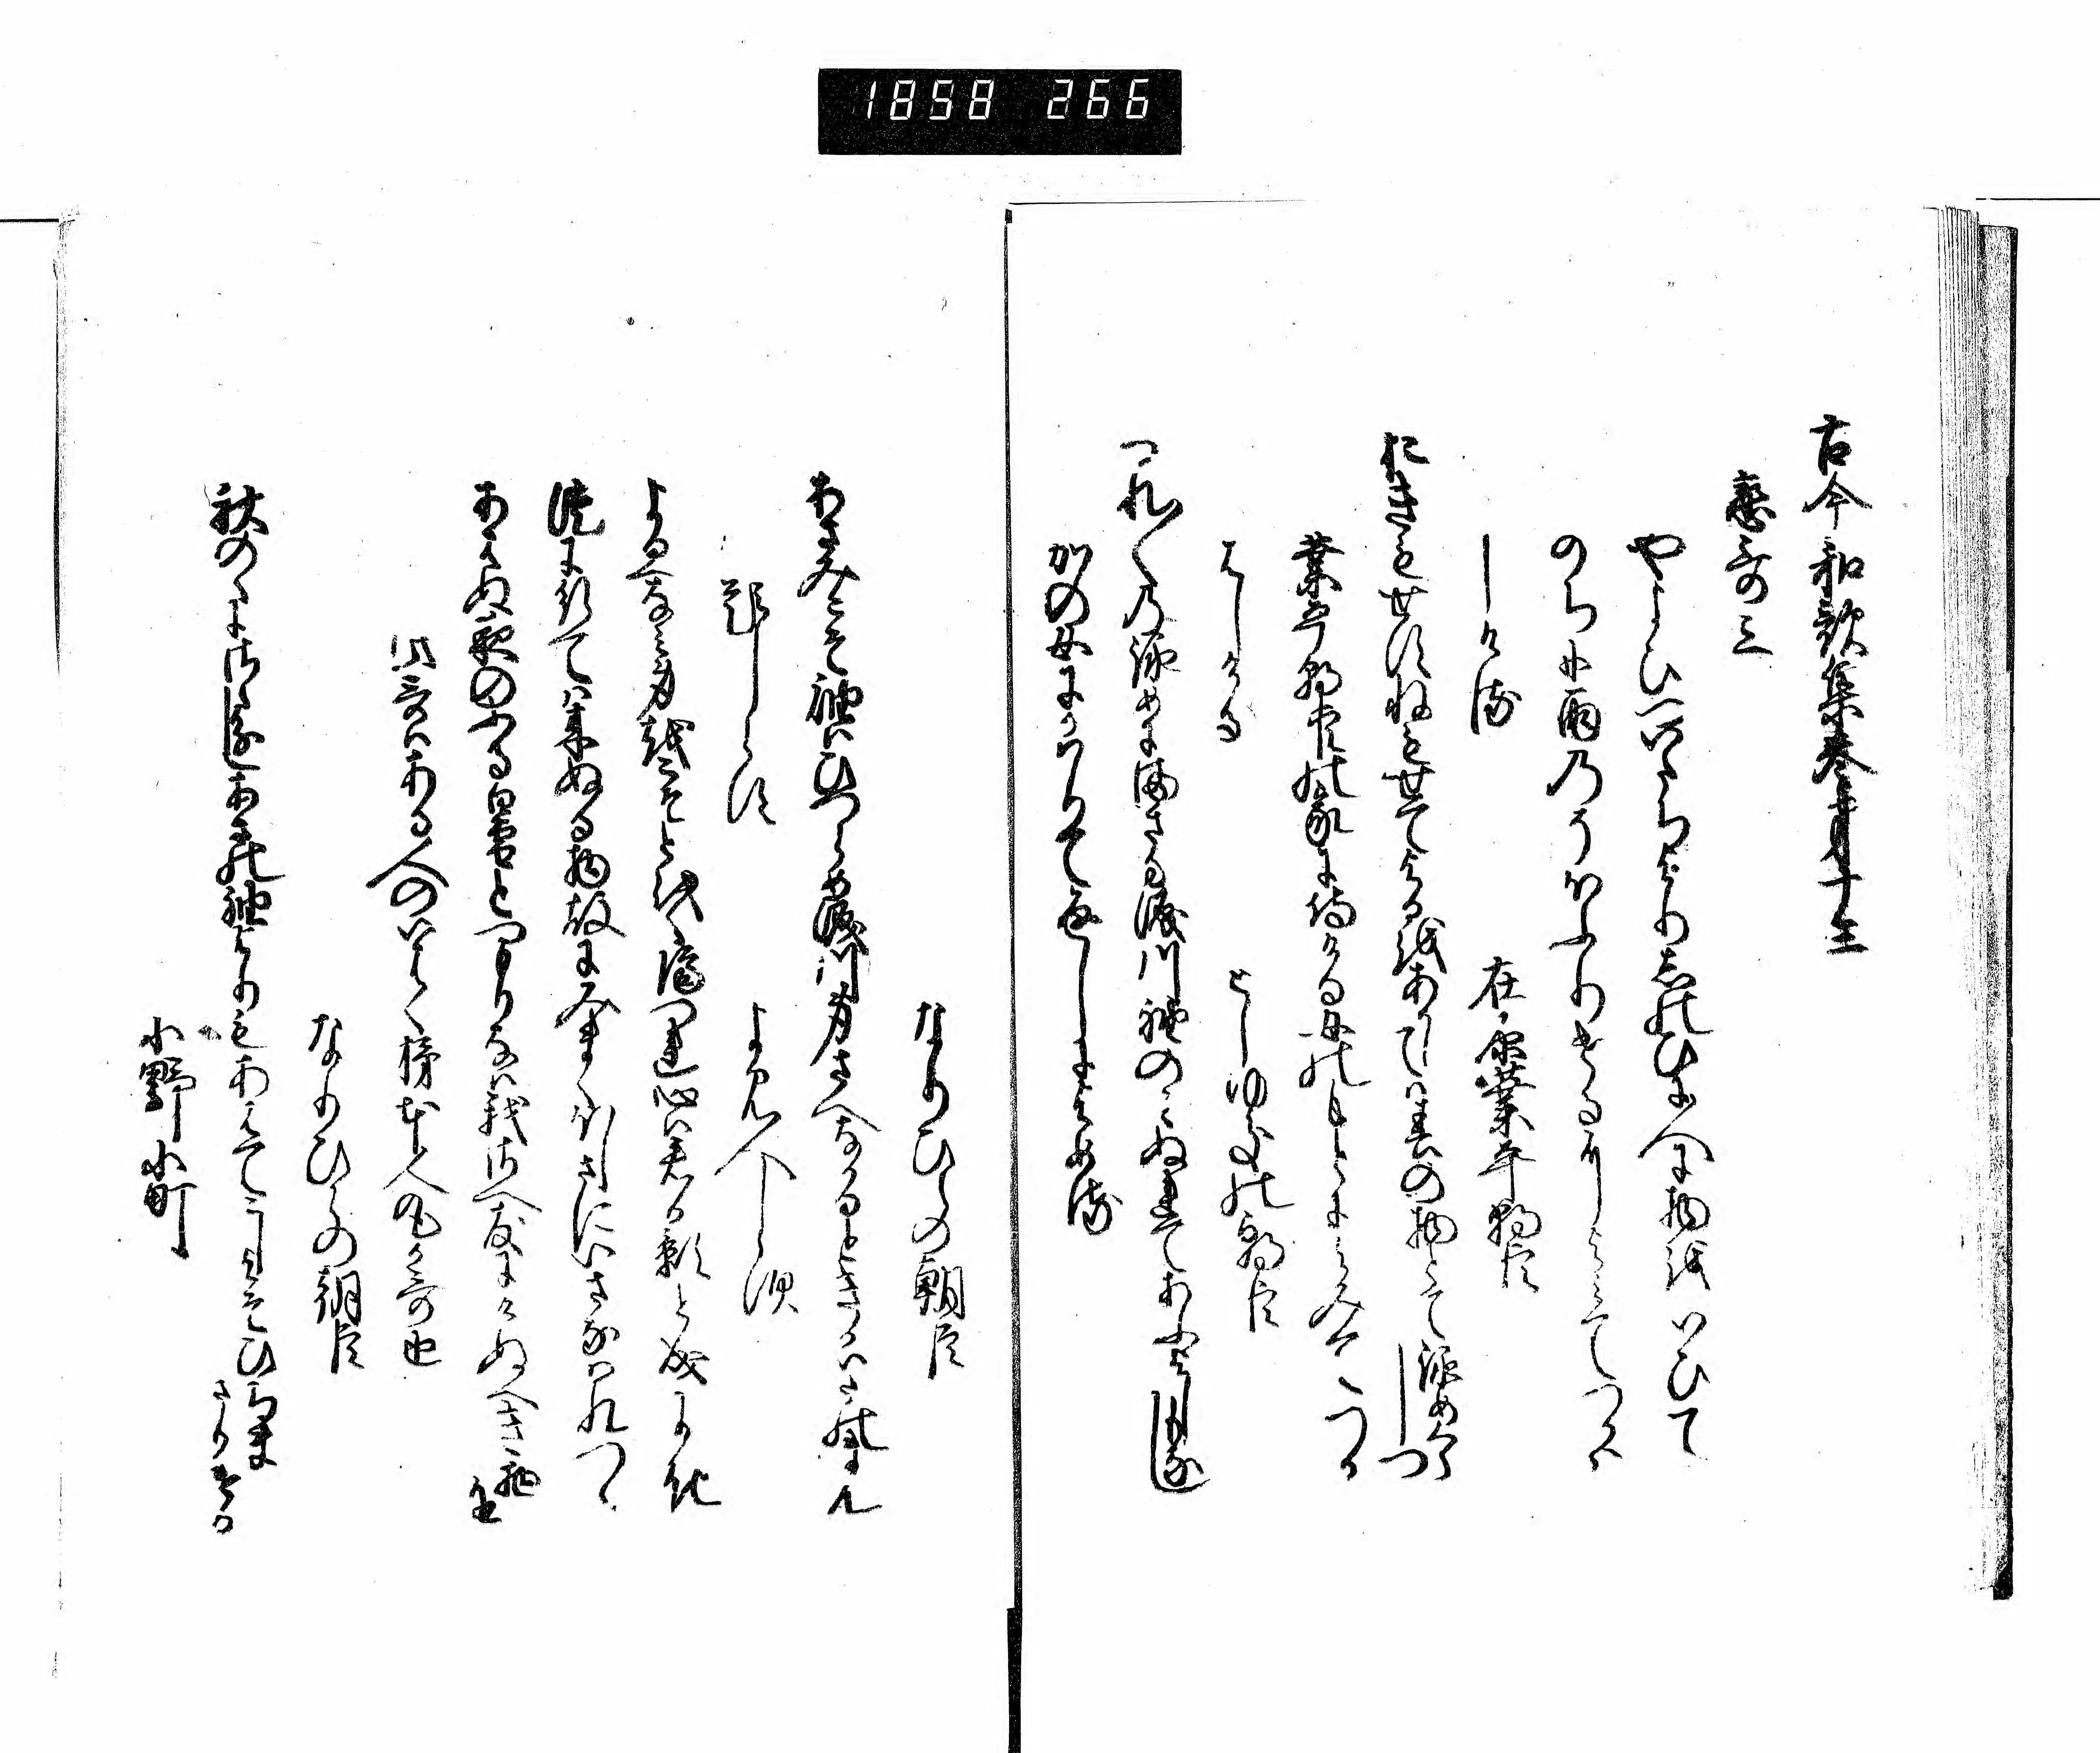 1858 266
古今和歌集巻第十三
恋哥三
やよひのついたちよりしのひに人に物をいひて
のちに雨のそほふりけるによみてつかは
しける
在原業平朝臣
おきもせすねもせてよるをあかしては春の物とてなかめくらしつ
業平朝臣の家に侍ける女のもとによみてつか
はしける
としゆきの朝臣
つれ〱のなかめにまさる涙川袖のみぬれてあふよしもなし
かの女にかはりて返しによめる
なりひらの朝臣
あさみこそ袖はひつらめ涙川身さへなかるときかはたのまん
題しらす
よみ人しらす
よるへなみ身をこそとをくへたてつれ心は君か影と成にき
徒に行ては来ぬる物故に見まくほしさにいさなはれつゝ
あはぬ夜のふる白雪とつもりなは我さへともにけぬへき物を
此哥はある人のいはく柿本人丸か哥也
なりひらの朝臣
秋のゝにさゝわけしあさの袖よりもあはてこしよそひちまさりける
小野小町